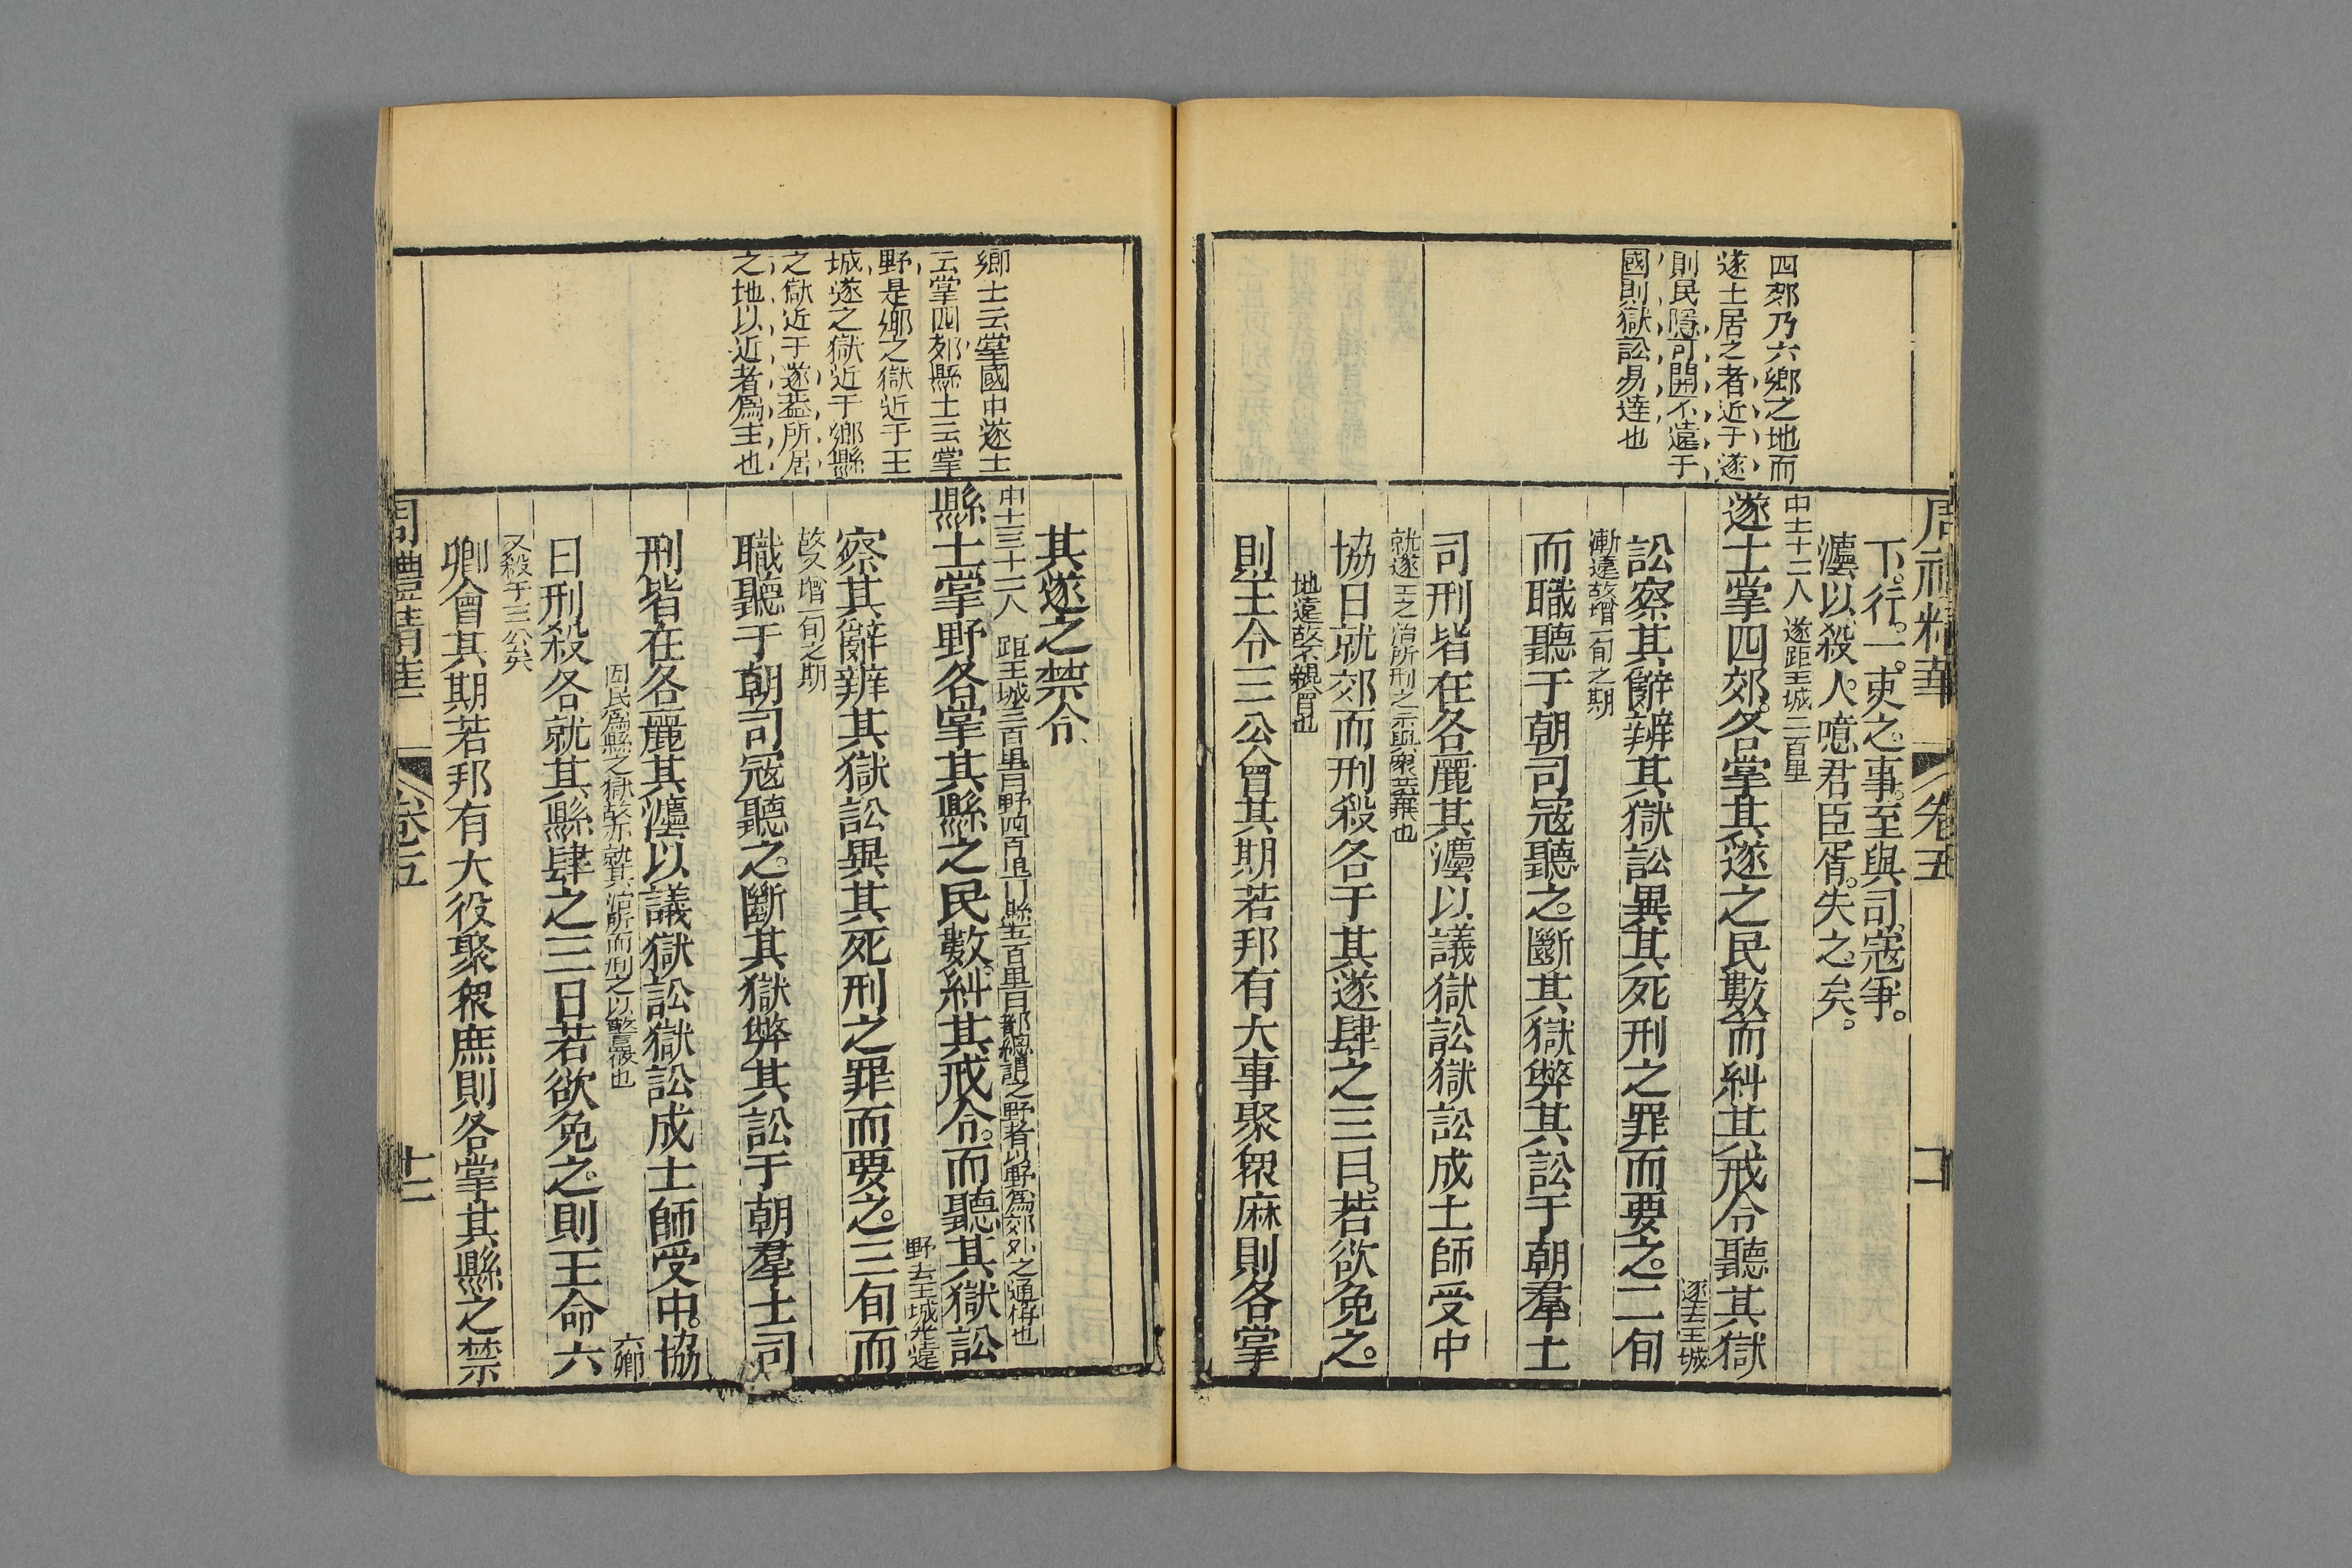 周禮精華 卷五
四郊乃六鄉之地而
遂士居之者近于遂
則民隱可開不遠于
國則獄訟易達也
下。行。一。吏之。事。至與司寇爭。
灋以殺人。噫君臣胥。失之。矣。
中士十二人 遂距王城二百里
遂士掌四郊。各掌其遂之民數而糾其戒令聽其獄
遂去王城
訟察其辭辨其獄訟異其死刑之罪而要之。二旬
漸遠故增一旬之期
而職聽于朝司寇聽之。斷其獄弊其訟于朝羣士
司刑皆在各麗其灋以議獄訟獄訟成士師受中
就遂士之治所刑之示與衆共棄也
協日就郊而刑殺各于其遂肆之三日。若欲免之。
地遠故不親會也
則王令三公會其期若邦有大事聚衆庶則各掌
鄉士云掌國中遂士
云掌四郊縣士云掌
野是鄉之獄近于王
城遂之獄近于鄉縣
之獄近于遂葢所居
之地以近者爲主也
其遂之禁令
中士三十二人 距王城三百里曰野四百里曰縣五百里曰都總謂之野者以野爲郊外之通稱也
縣士掌野各掌其縣之民數糾其戒令。而聽其獄訟
野去王城光遠
察其辭辨其獄訟異其死刑之罪而要之。三旬而
故又增一旬之期
職聽于朝司寇聽之。斷其獄弊其訟于朝羣士司
刑皆在各麗其灋以議獄訟獄訟成士師受中。協
因民爲縣之獄故亦就其治所而刑之以警衆也 六卿
日刑殺各就其縣肆之三日若欲免之。則王命六
又殺于三公矣
卿會其期若邦有大役聚衆庶則各掌其縣之禁
周禮精華 卷五 十二